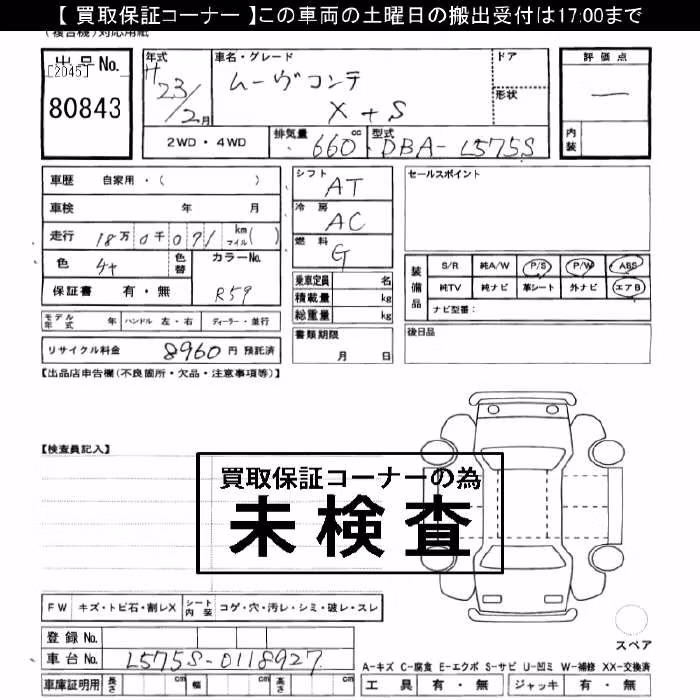 【 買取保証コーナー 】この車両の土曜日の搬出受付は17:00まで
(複合機)対応用紙
出品No.
[2045]
80843
年式
H23/2月
車名・グレード
ムーヴコンテ
X+S
ドア
形状
評価点
―
内装
2WD・4WD
排気量 660 cc
型式 DBA-L575S
車歴 自家用・( )
車検 年 月
走行 18万0千071 km マイル( )
色
色替
カラーNo.
R59
保証書 有・無
シフト AT
冷房 AC
燃料 G
乗車定員 名
積載量 kg
総重量 kg
書類期限
月 日
セールスポイント
装備品
S/R 純A/W P/S P/W ABS
純TV 純ナビ 革シート 外ナビ エアB
ナビ型番:
後日品
モデル年式 年 ハンドル 左・右 ディーラー・並行
リサイクル料金 8960 円 預託済
【出品店申告欄(不良箇所・欠品・注意事項等)】
【検査員記入】
買取保証コーナーの為
未検査
FW キズ・トビ石・割レX シート内装 コゲ・穴・汚レ・シミ・破レ・スレ
登録No.
車台No. L575S-0118927
車庫証明用 長さ cm 幅 cm 高さ cm
スペア
A-キズ C-腐食 E-エクボ S-サビ U-凹ミ W-補修 XX-交換済
工具 有・無 ジャッキ 有・無